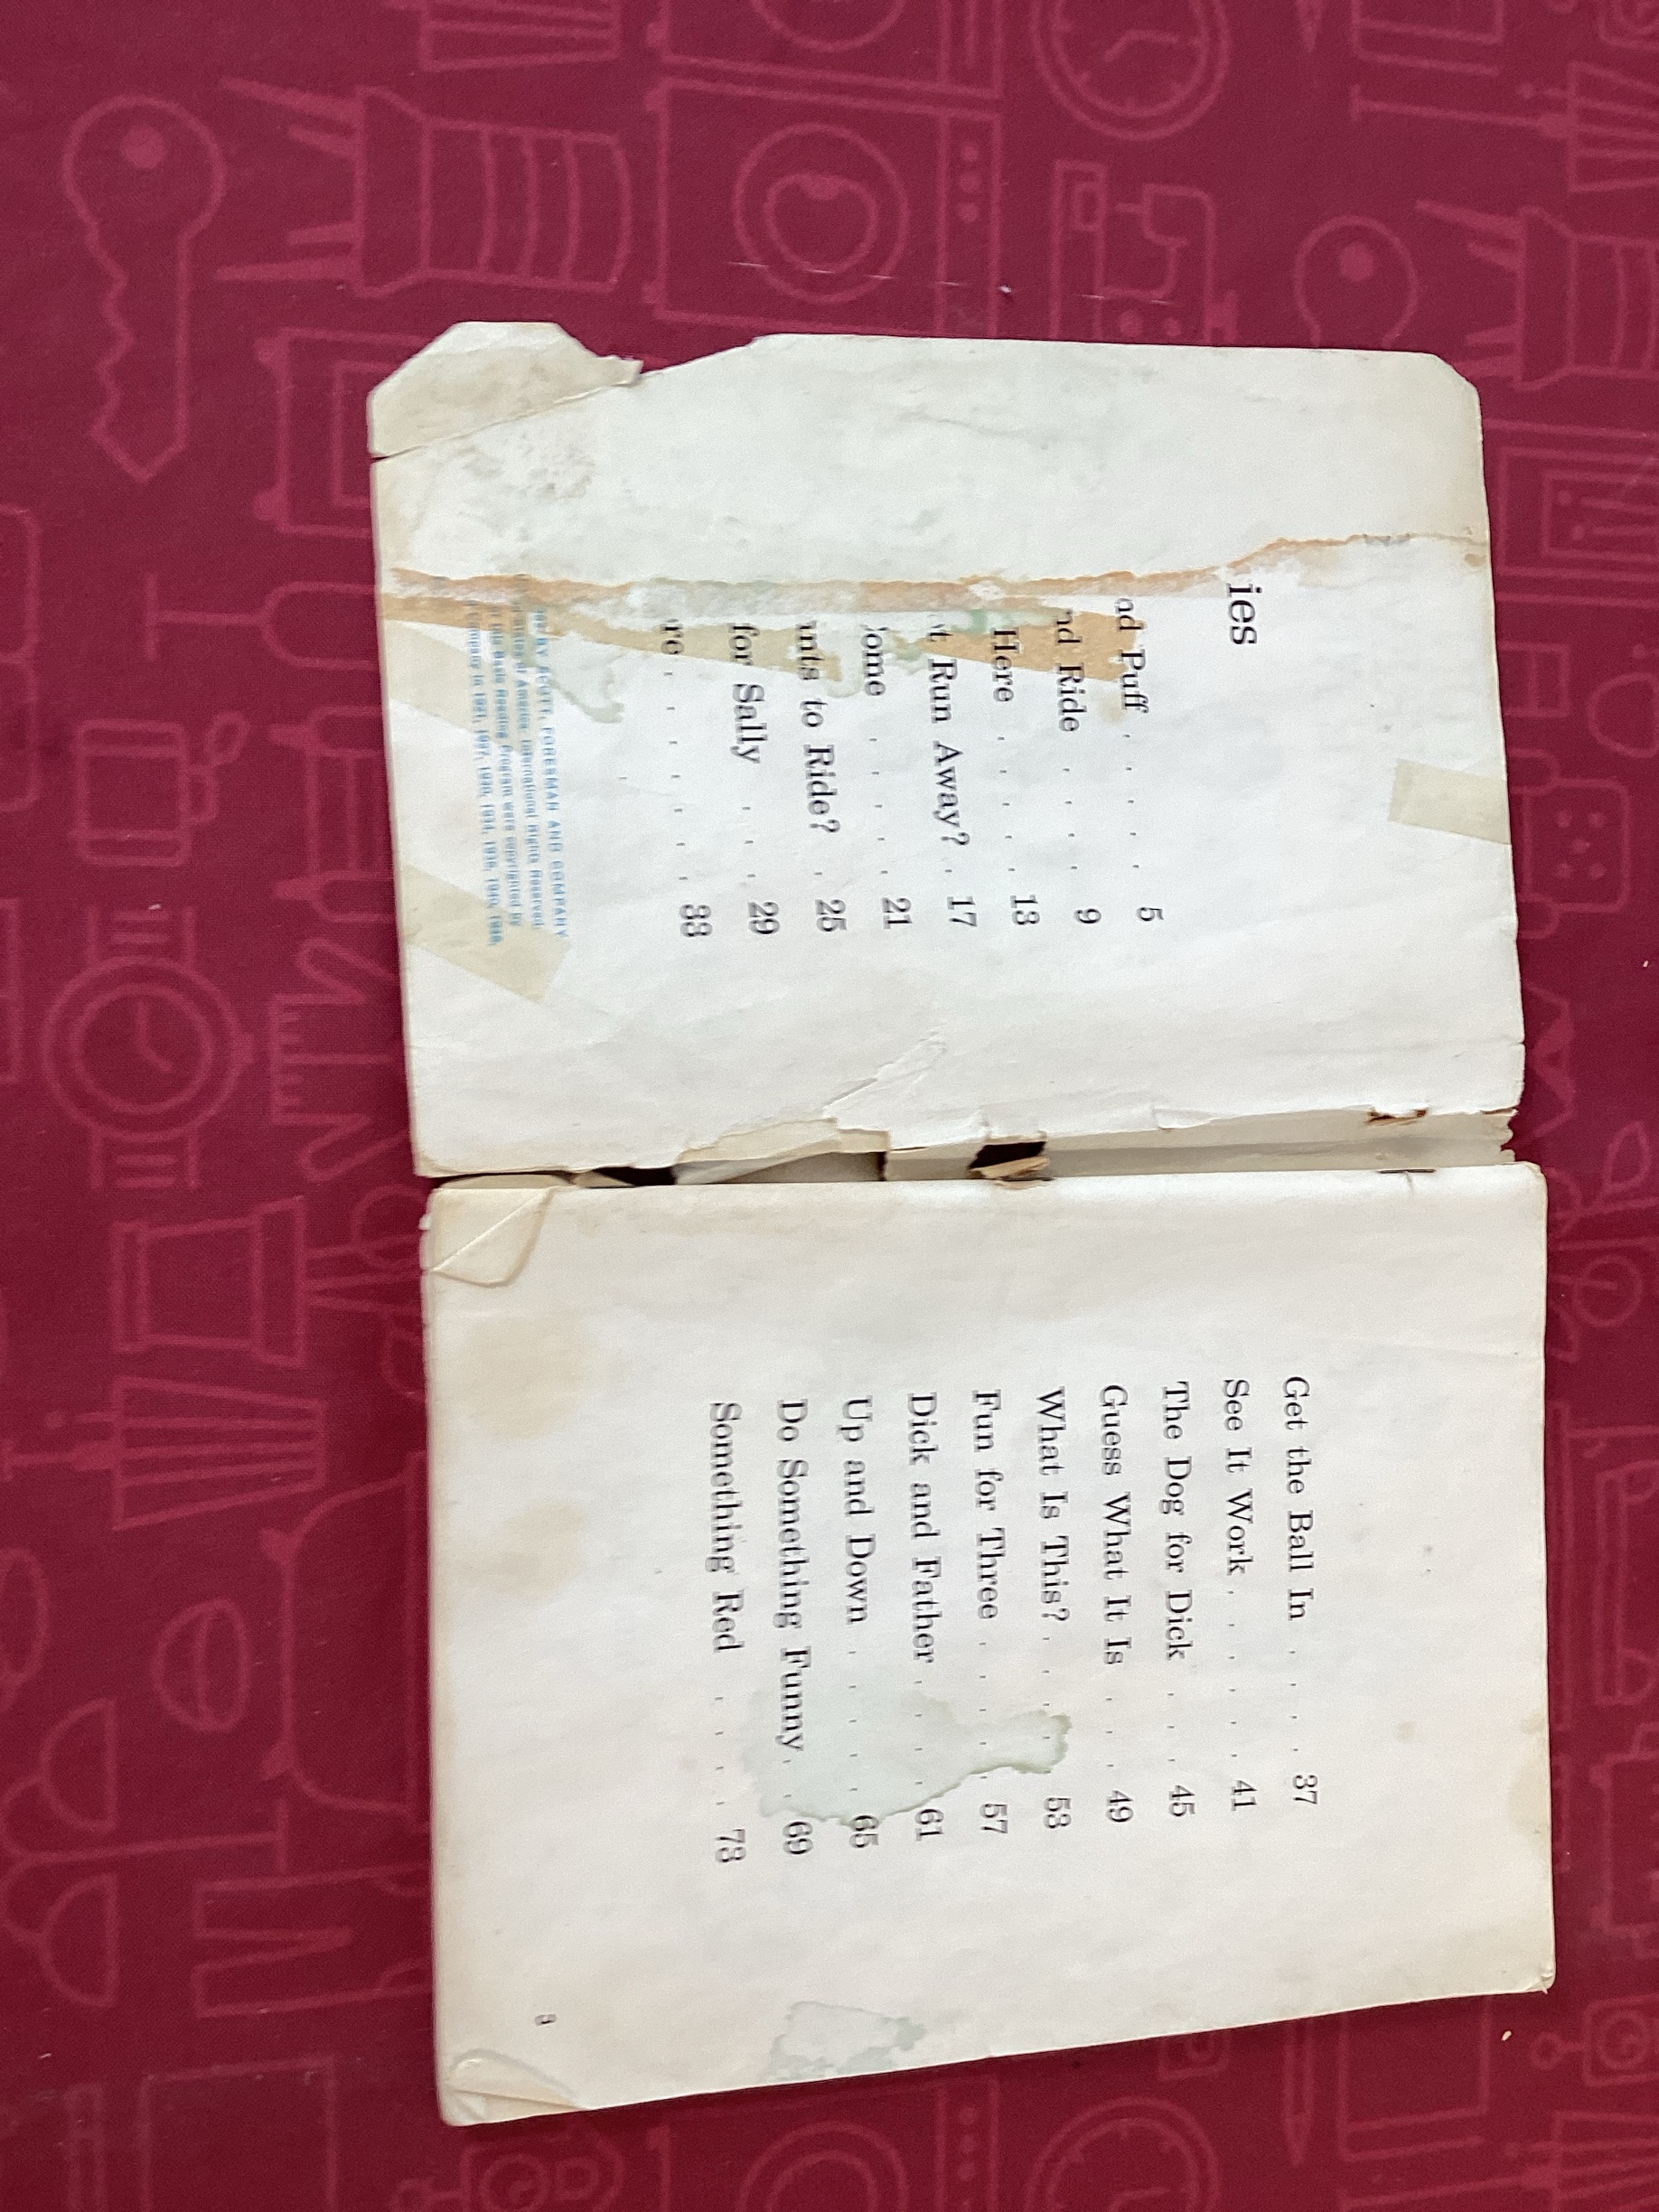 ies
ad Puff . . . . . 5
nd Ride . . . . 9
Here . . . . . 13
t Run Away? . 17
ome . . . . . 21
nts to Ride? . 25
for Sally . . . . 29
re . . . . . . . 33
BY SCOTT, FORESMAN AND COMPANY
of America. International Rights Reserved.
Basic Reading Program were copyrighted by
Company in
Get the Ball In . . . . 37
See It Work . . . . . . 41
The Dog for Dick . . . 45
Guess What It Is . . . 49
What Is This? . . . . 53
Fun for Three . . . . . 57
Dick and Father . . . . 61
Up and Down . . . . . 65
Do Something Funny . . 69
Something Red . . . . 73
3